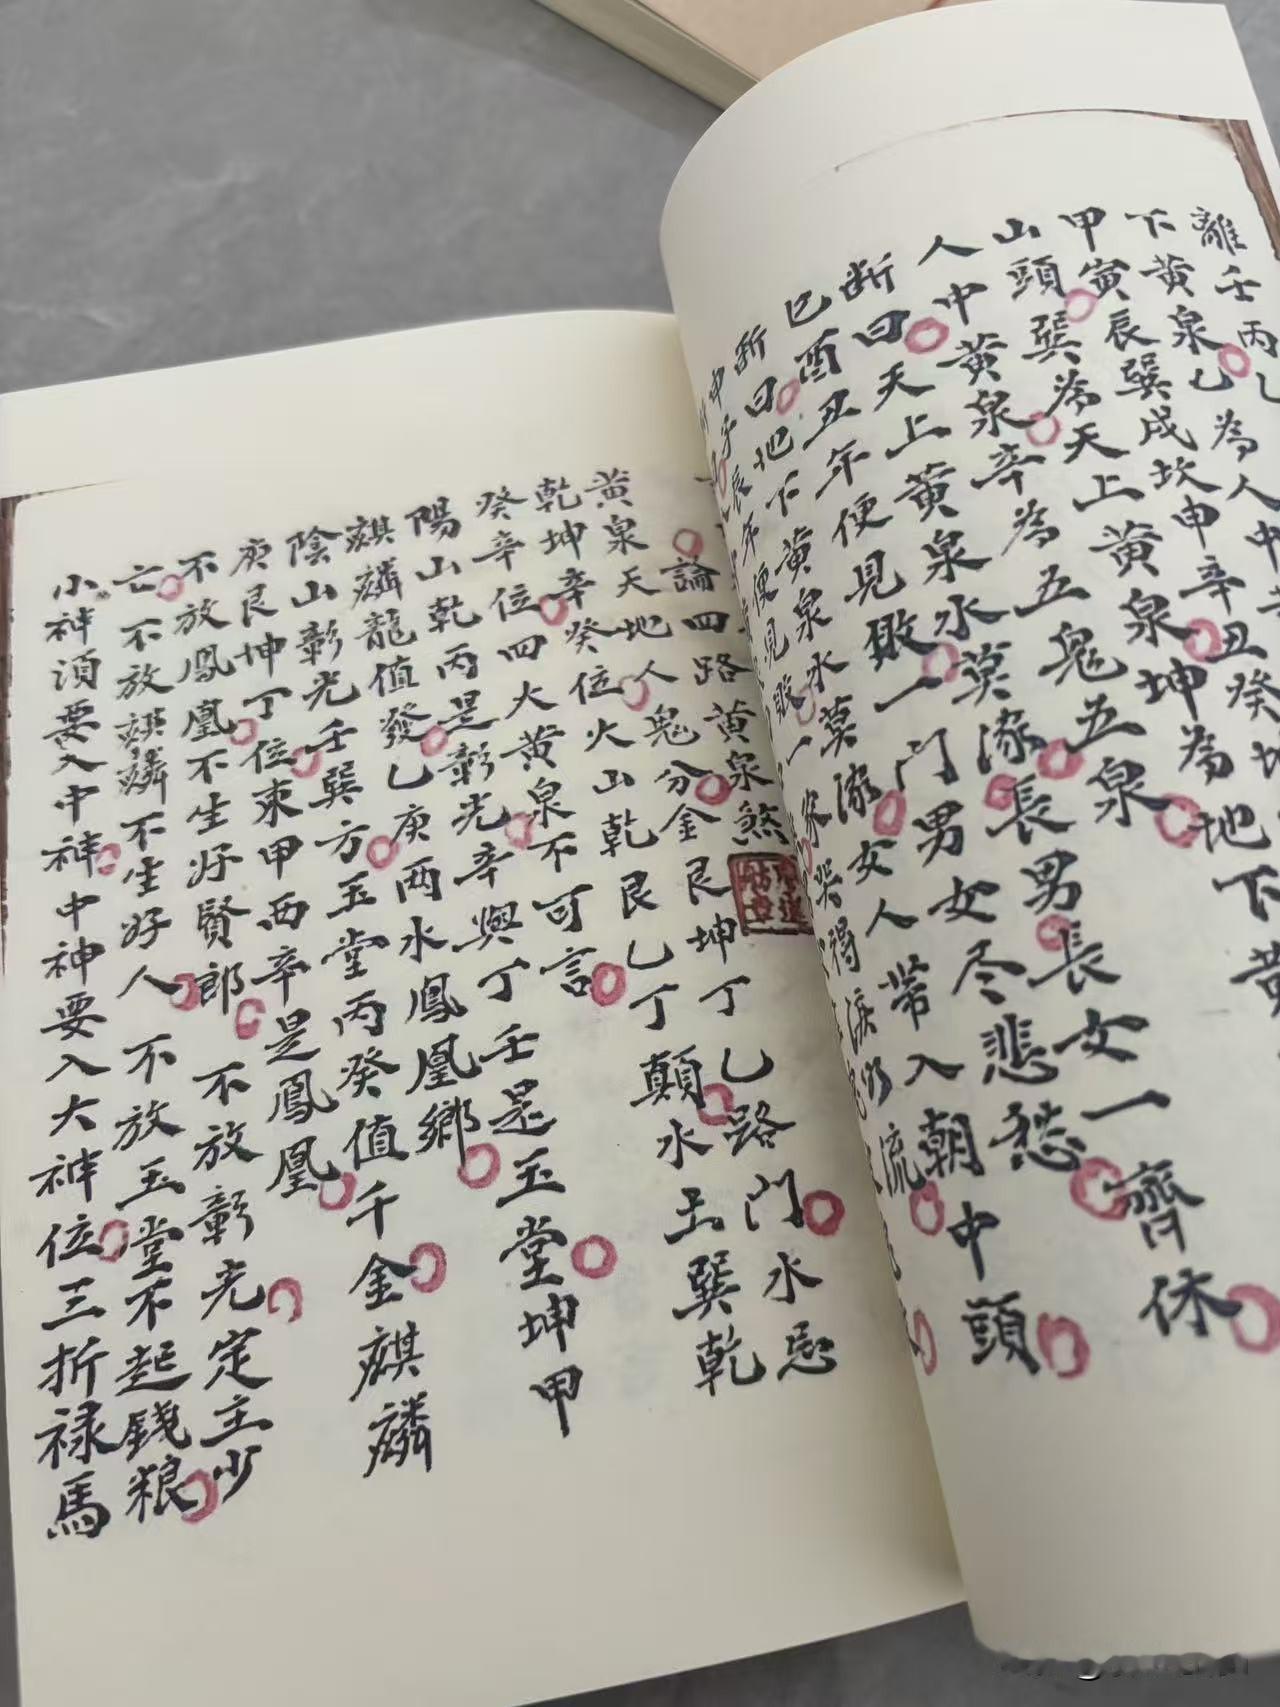 離壬丙
下黄泉乙為人中
甲寅辰巽戌坎申辛丑癸坤
山頭巽為天上黄泉坤為地下黄
人中黄泉辛為五鬼五泉
断曰天上黄泉水莫長男長女一齊休
巳酉丑年便見敗一門男女尽悲愁
断曰地下黄泉水莫女人带入朝中頭
申子辰年便見敗一家哭得淚流
一論四路黄泉煞
黄泉天地人鬼分金艮坤丁乙路門水忌
乾坤辛癸位火山乾艮乙丁顛水土巽乾
癸辛位四大黄泉不可言
陽山乾丙是彰光辛與丁壬是玉堂坤甲
麒麟龍值發乙庚両水鳳凰鄉
陰山彰光壬巽方玉堂丙癸值千金麒麟
庚艮坤丁位束甲西辛是鳳凰
不放鳳凰不生好賢郎不放彰光定主少
亡不放麒麟不生好人不放玉堂不起錢粮
小神須要入中神中神要入大神位三折禄馬